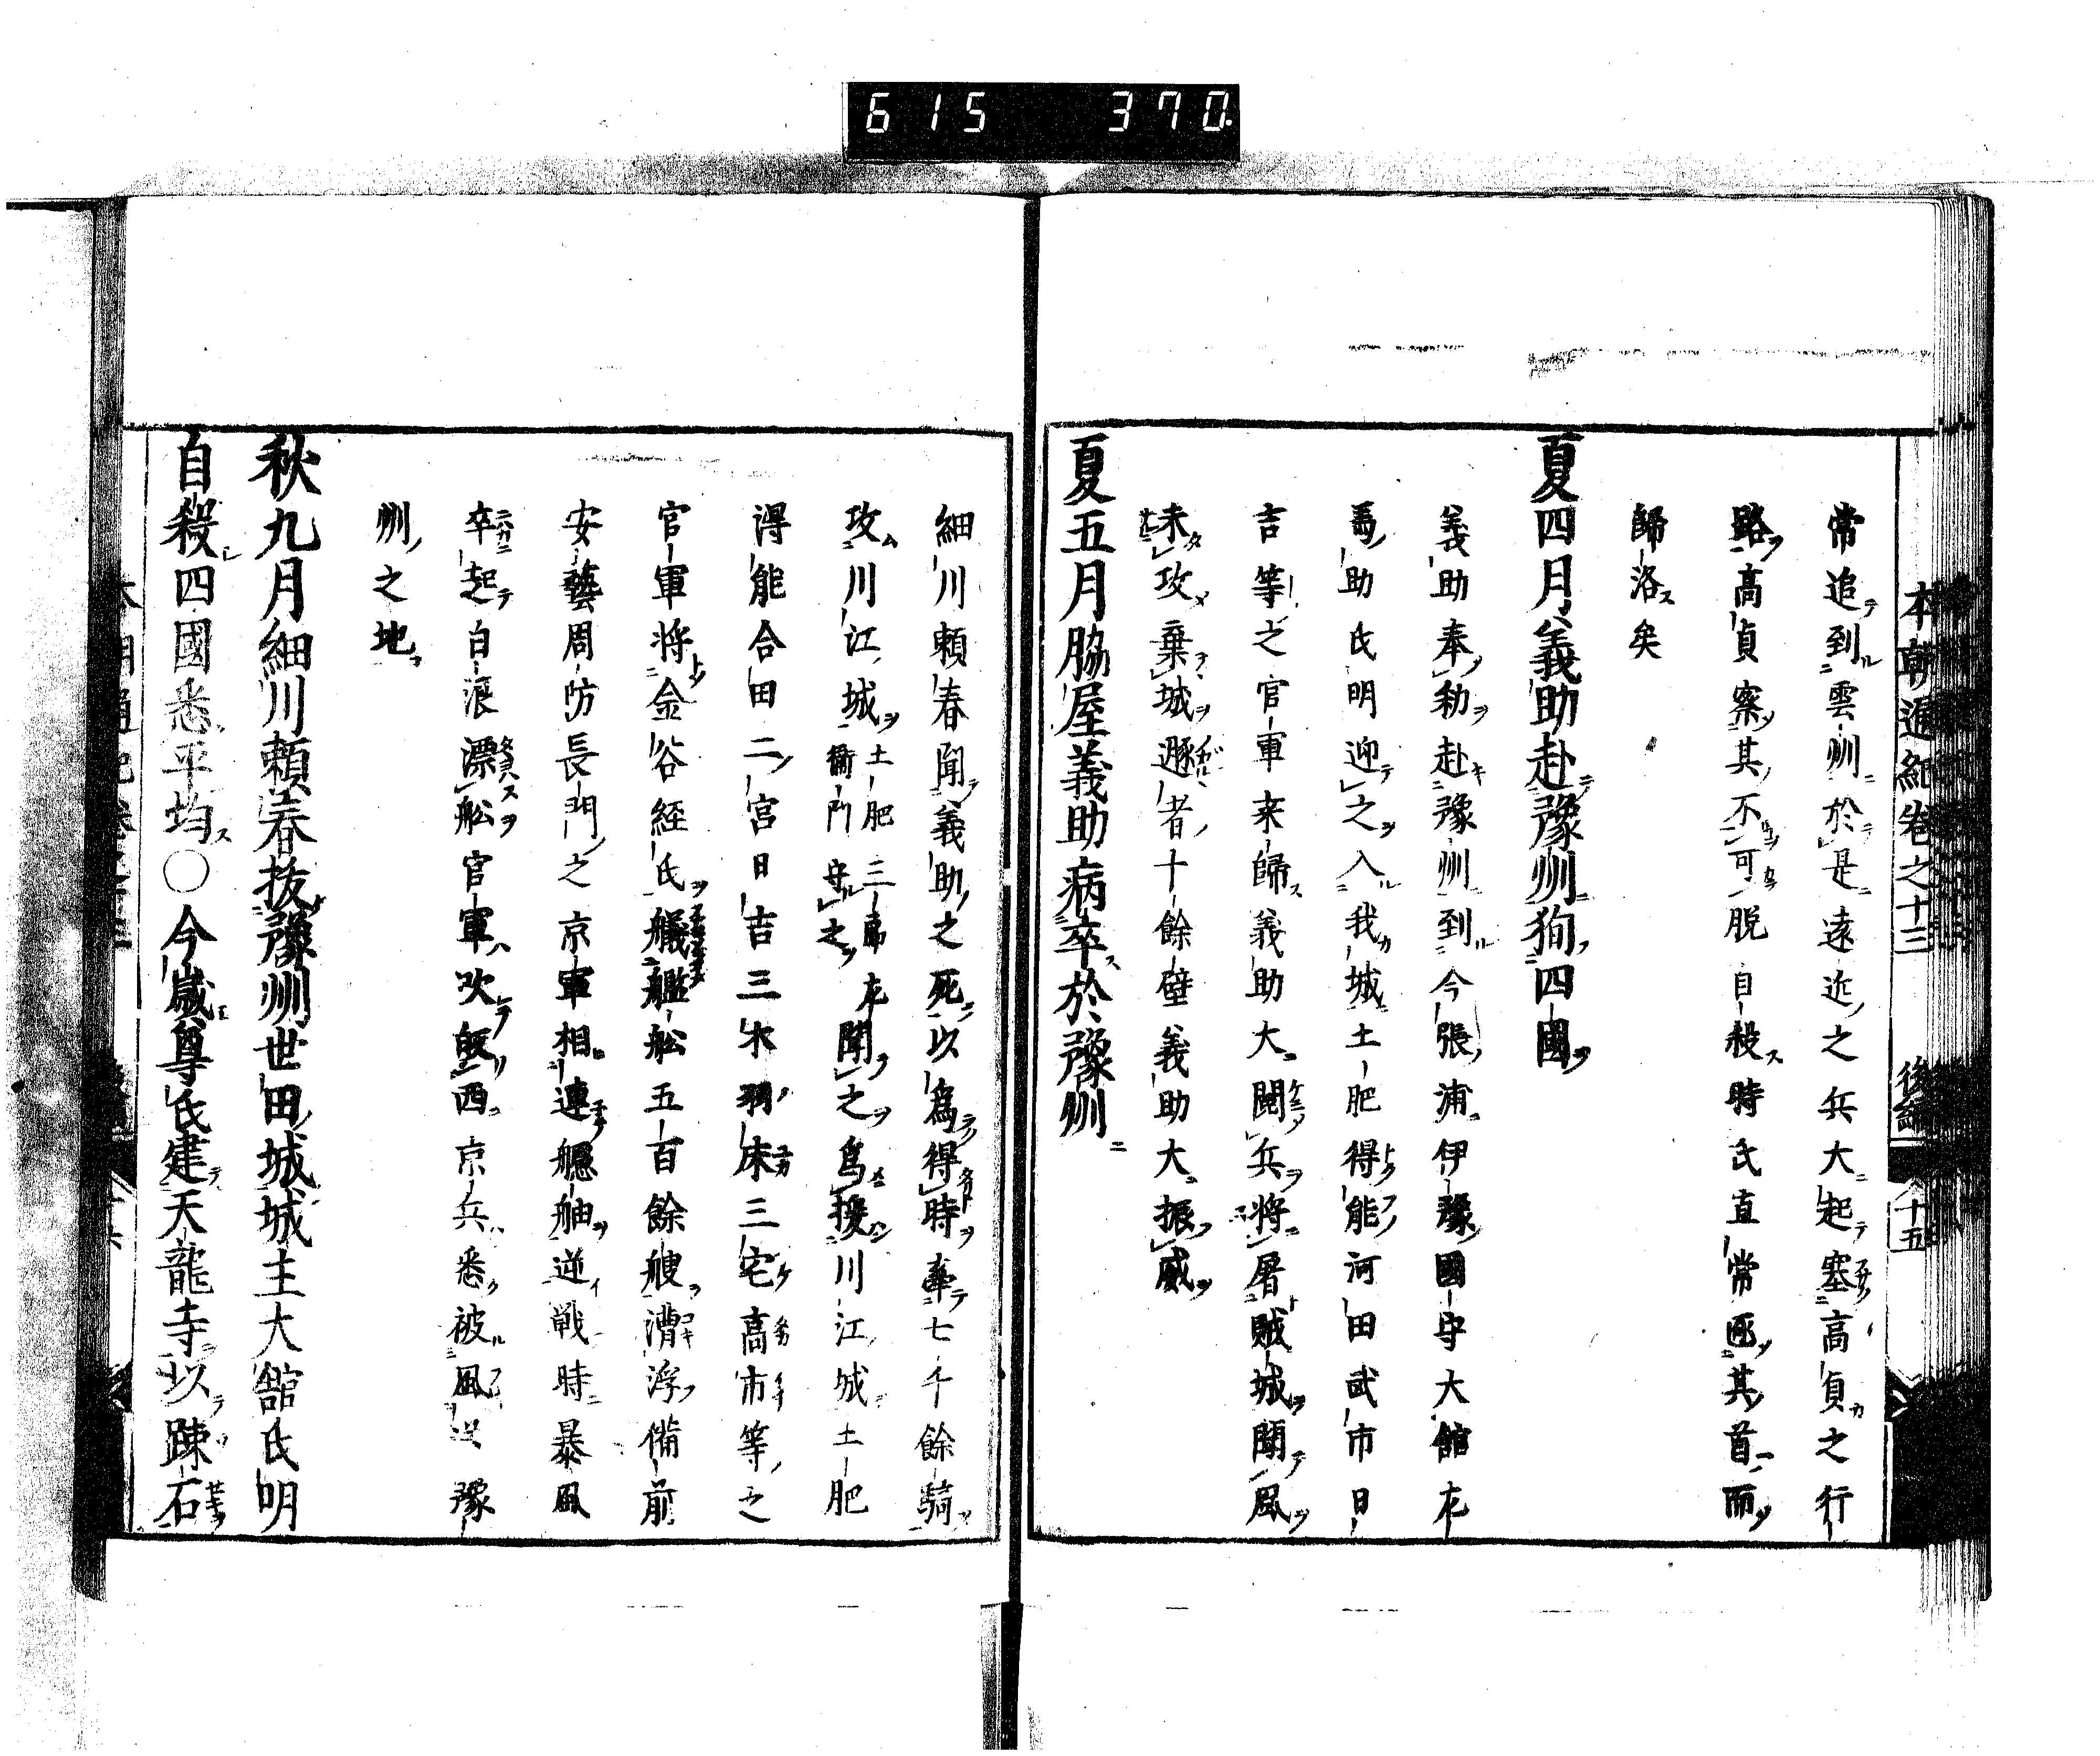 615 370
本朝通紀卷之十三 後編 十五
常追到雲州於是遠近之兵大起塞高貞之行
路高貞察其不可脱自殺時氏直常函其首而
歸洛矣
夏四月義助赴豫州狥四國
義助奉勅赴豫州到今張浦伊豫國守大舘左
馬助氏明迎之入我城土肥得能河田武市日
吉等之官軍来歸義助大閲兵將屠賊城聞風
未攻棄城遯者十餘壁義助大振威
夏五月脇屋義助病卒於豫州
細川頼春聞義助之死以為得時牽七千餘騎
攻川江城土肥三郎左衞門守之聞之為援川江城土肥
得能合田二宮日吉三木羽床三宅高市等之
官軍將金谷經氏艤艦舩五百餘艘漕浮備前
安藝周防長門之京軍相連艫舳逆戦時暴風
卒起白浪漂舩官軍吹皈西京兵悉被風送豫
州之地
秋九月細川頼春抜豫州世田城城主大舘氏明
自殺四國悉平均○今歲尊氏建天龍寺以踈石